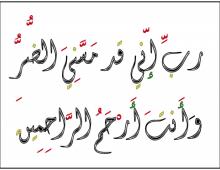 رَبِّ إِنِّي قَدْ مَسَّنِيَ الضُّرُّ
وَأَنْتَ أَرْحَمُ الرَّاحِمِينَ